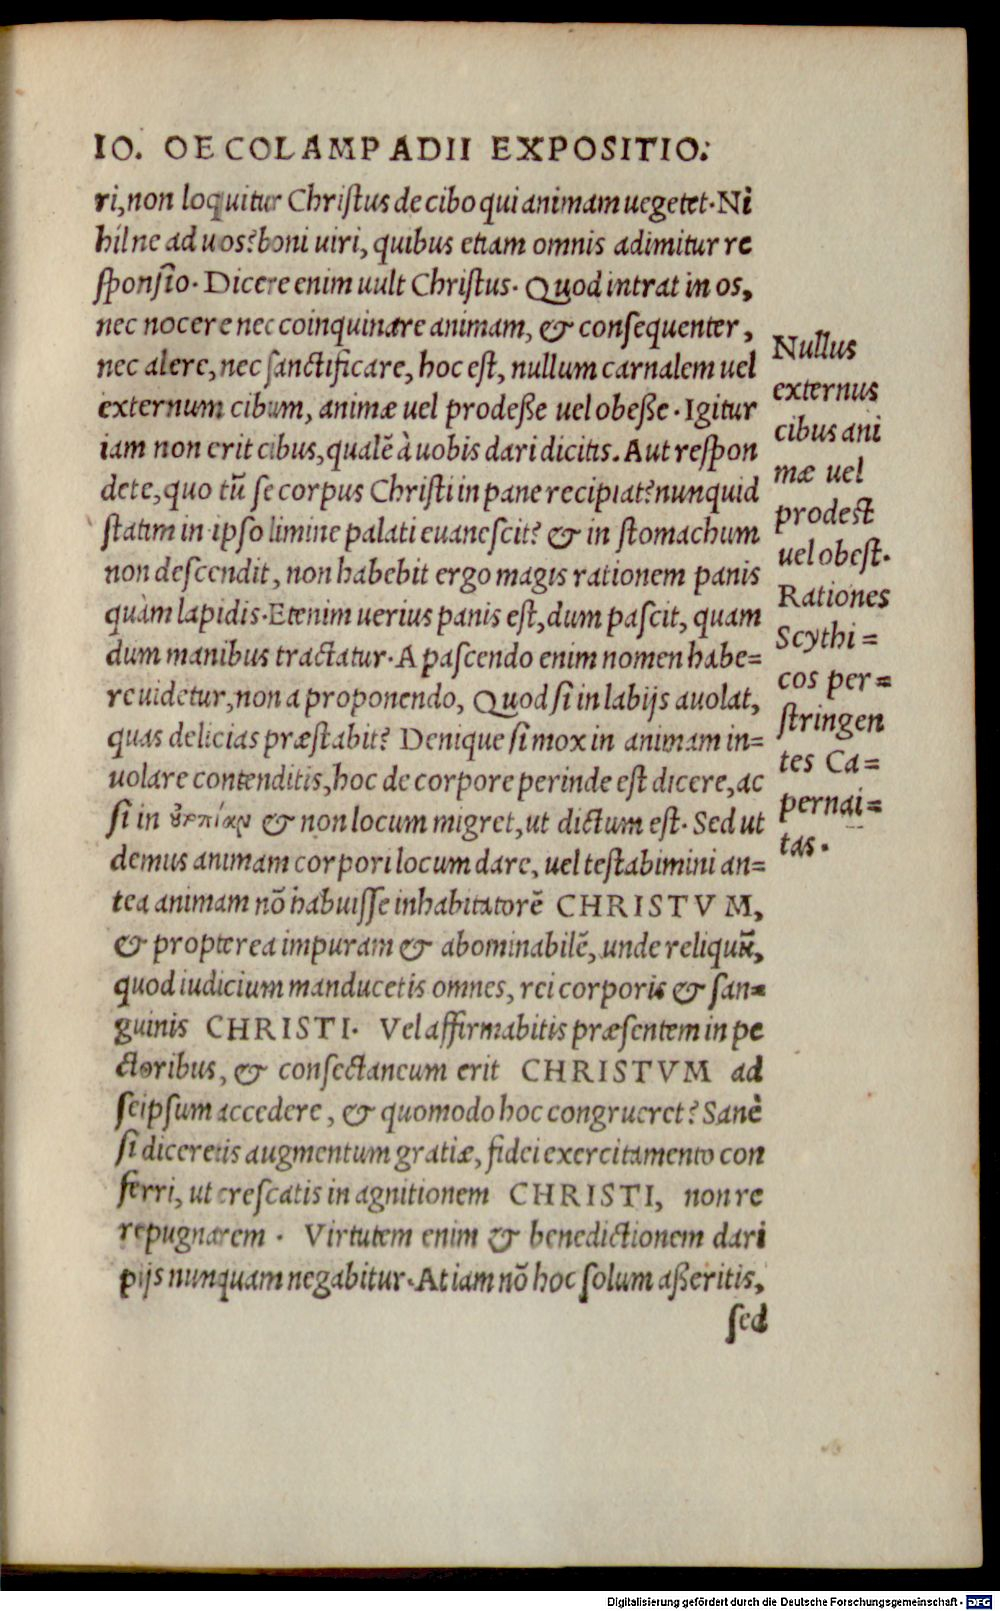 IO. OECOLAMPADII EXPOSITIO.
ri, non loquitur Christus de cibo qui animam uegetet. Ni
hil ne ad uos? boni uiri, quibus etiam omnis adimitur re
sponsio. Dicere enim uult Christus. Quod intrat in os,
nec nocere nec coinquinare animam, & consequenter,
nec alere, nec sanctificare, hoc est, nullum carnalem uel
externum cibum, animæ uel prodesse uel obesse. Igitur
iam non erit cibus, qualẽ à uobis dari dicitis. Aut respon
dete, quo tũ se corpus Christi in pane recipiat? nunquid
statim in ipso limine palati euanescit? & in stomachum
non descendit, non habebit ergo magis rationem panis
quàm lapidis. Etenim uerius panis est, dum pascit, quam
dum manibus tractatur. A pascendo enim nomen habe=
re uidetur, non a proponendo, Quod si in labijs auolat,
quas delicias præstabit? Denique si mox in animam in=
uolare contenditis, hoc de corpore perinde est dicere, ac
si in & non locum migret, ut dictum est. Sed ut
demus animam corpori locum dare, uel testabimini an=
tea animam nõ habuisse inhabitatorẽ CHRISTVM,
& propterea impuram & abominabilẽ, unde reliquũ,
quod iudicium manducetis omnes, rei corporis & san=
guinis CHRISTI. Vel affirmabitis præsentem in pe
ctoribus, & consectaneum erit CHRISTVM ad
seipsum accedere, & quomodo hoc congrueret? Sanè
si diceretis augmentum gratiæ, fidei exercitamento con
ferri, ut crescatis in agnitionem CHRISTI, non re
repugnarem. Virtutem enim & benedictionem dari
pijs nunquam negabitur. At iam nõ hoc solum asseritis,
sed
Nullus
externus
cibus ani
mæ uel
prodest
uel obest.
Rationes
Scythi=
cos per=
stringen
tes Ca=
pernai=
tas.
Digitalisierung gefördert durch die Deutsche Forschungsgemeinschaft - DFG